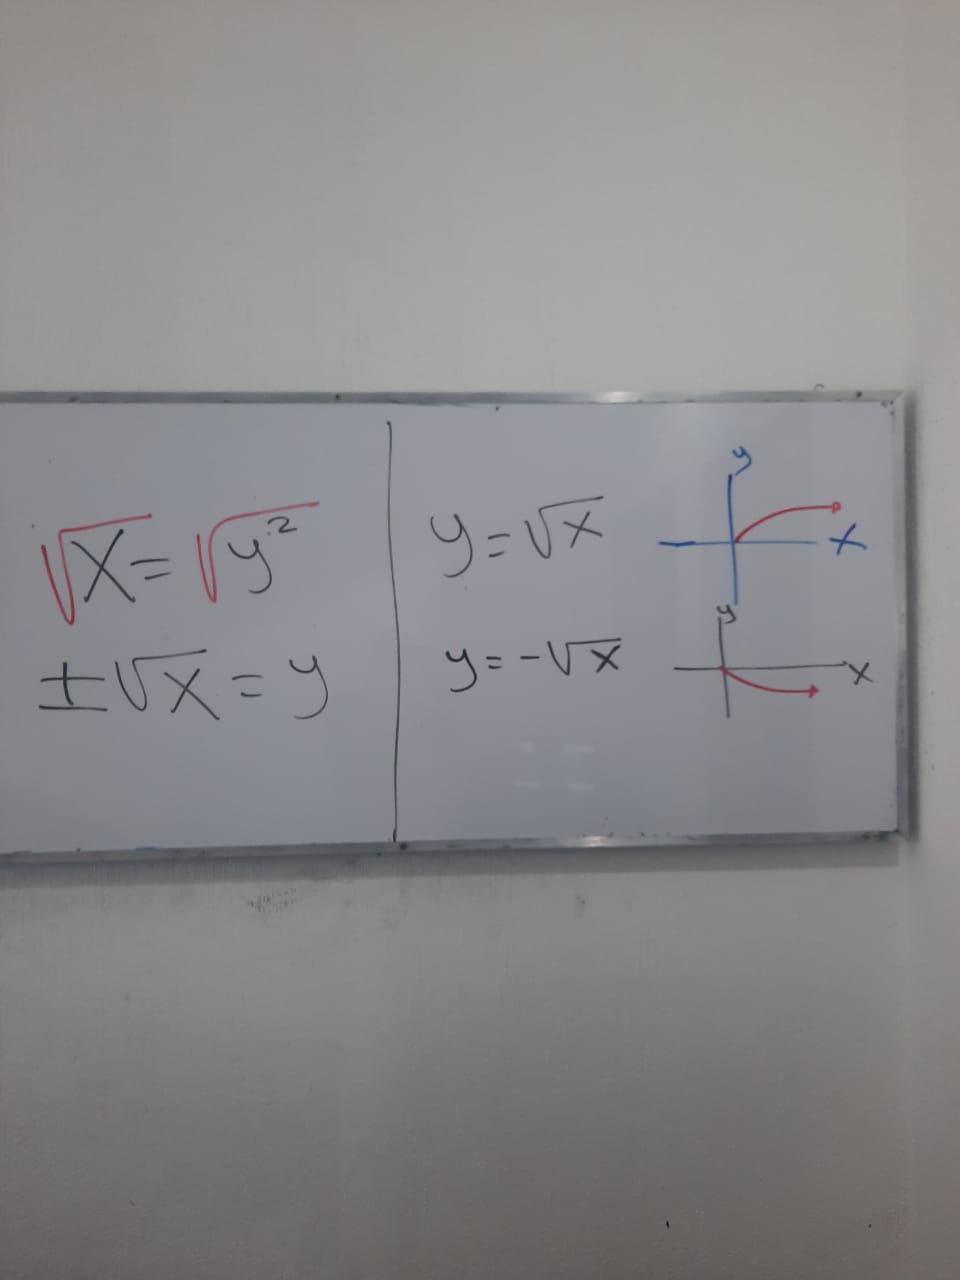 √x = √y²
±√x = y
y = √x
y
x
y = -√x
y
x